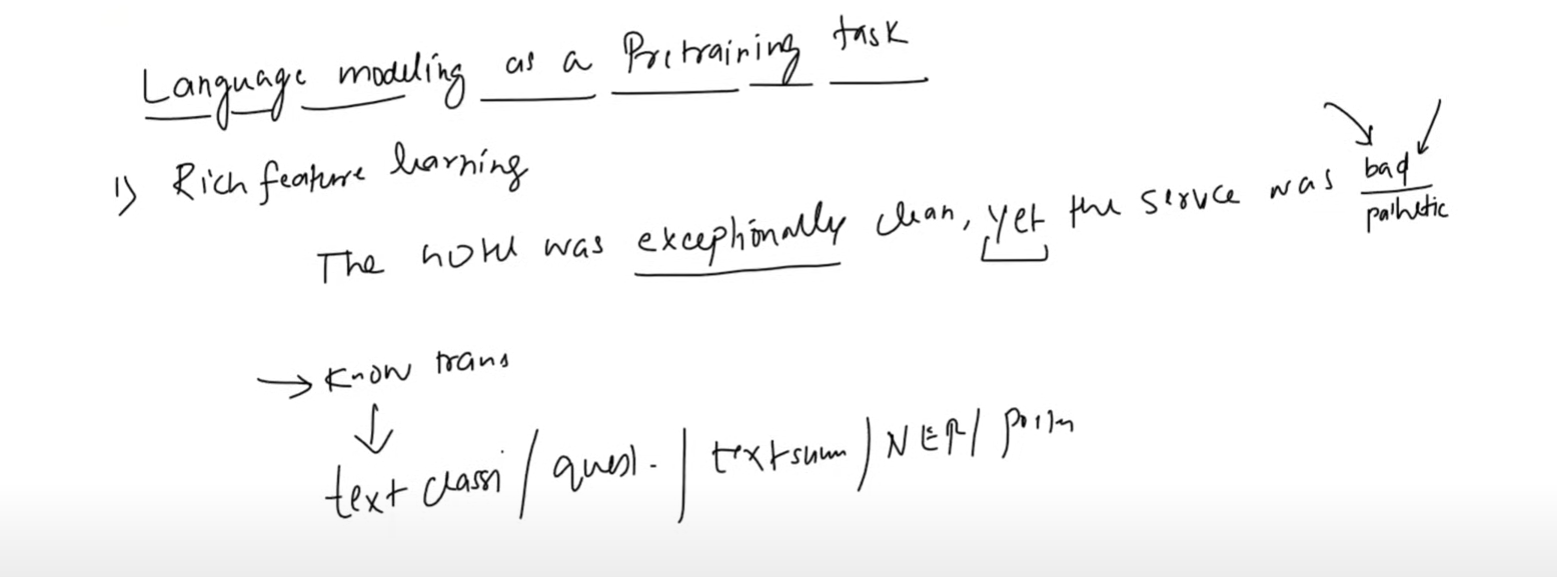 Language modeling as a Pretraining task
1) Rich feature learning
The hotel was exceptionally clean, yet the servce was bad
pathetic
→ Know trans
↓
text classi / quest. / text summ / NER /